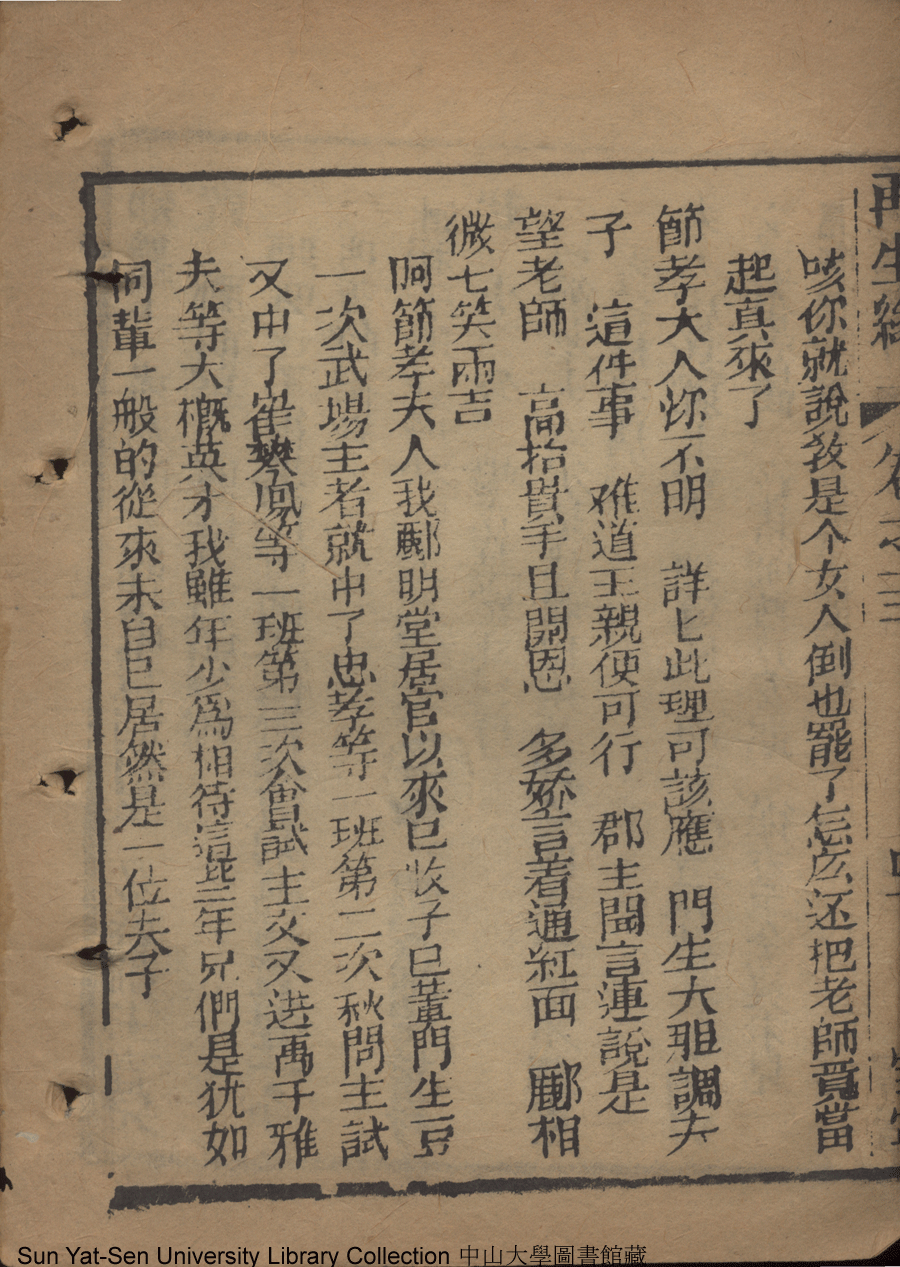 再生緣 卷之三
咳你就說教是个女人倒也罷了怎庅还把老師竟當
起真來了
節孝大人你不明 詳匕此理可該應 門生大胆調夫
子 這件事 难道王親便可行 郡主聞言連說是
望老師 高抬貴手且開恩 多嬌言着通紅面 郦相
微七笑兩吉
呵節孝夫人我酈明堂居官以來已收子已輩門生豆
一次武場主者就中了忠孝等一班第二次秋問主試
又中了崔攀凤等一班第三次會試主文又进禹千雅
夫等大概英才我雖年少爲相待這些三年兄們是犹如
同輩一般的從來未自已居然是一位夫子
Sun Yat-Sen University Library Collection 中山大學圖書館藏